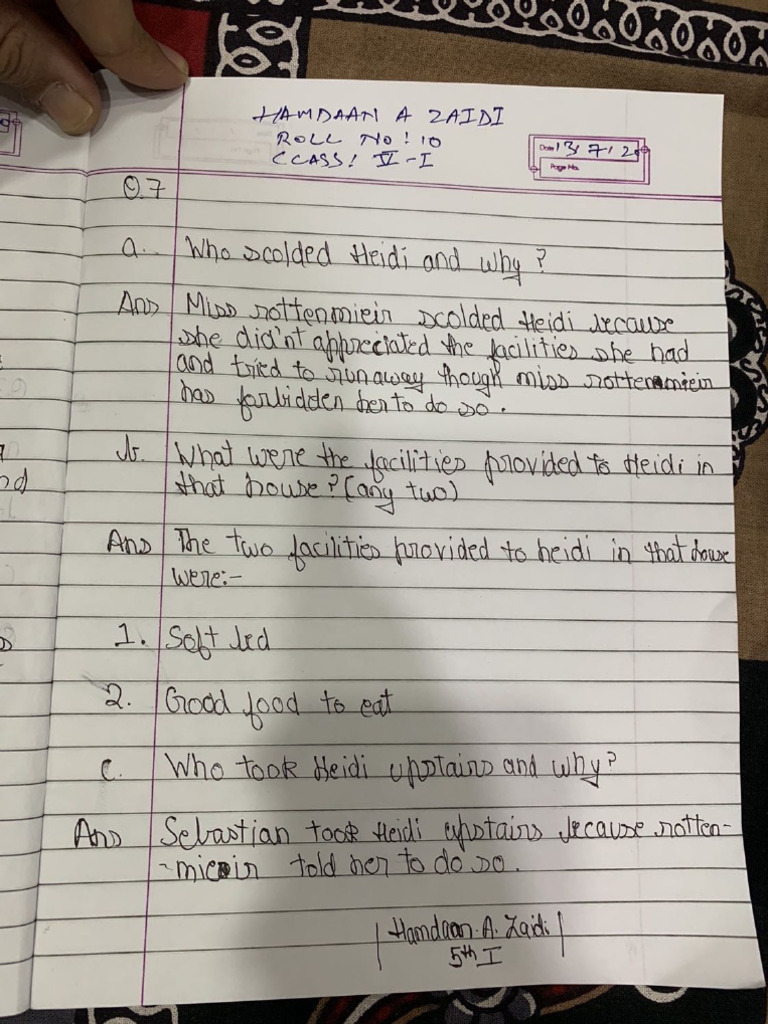 HAMDAAN A ZAIDI
ROLL NO: 10
CLASS: V-I
Date 13, 7, 20
Page No.
Q.7
a. Who scolded Heidi and why?
Ans Miss rottenmieir scolded Heidi because
she did'nt appreciated the facilities she had
and tried to run away though miss rottenmieir
has forbidden her to do so.
b. What were the facilities provided to Heidi in
that house? (any two)
Ans The two facilities provided to heidi in that house
were:-
1. Soft bed
2. Good food to eat
c. Who took Heidi upstairs and why?
Ans Sebastian took Heidi upstairs because rotten-
-mieir told her to do so.
Hamdaan. A. Zaidi
5th I